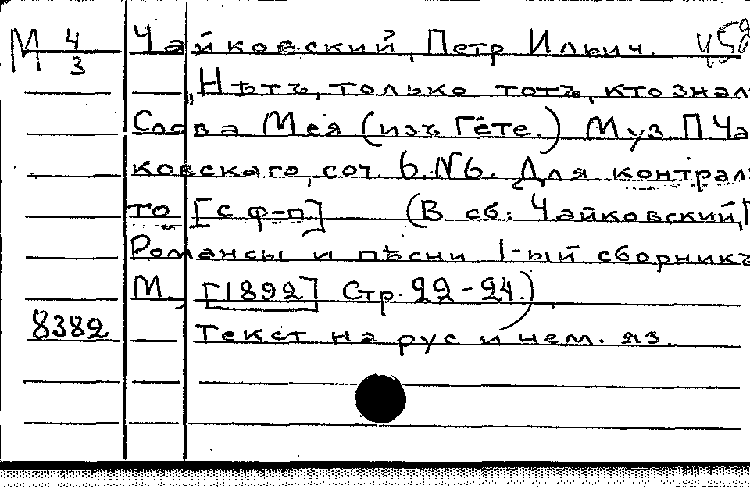 М 4/3 Чайковский, Петр Ильич. 458
„Нѣтъ, только тотъ, кто знал
Слова Мея (изъ Гёте.) Муз П Ча
ковскаго, соч 6. №6. Для контрал
то [с ф-п] (В сб: Чайковский, П
Романсы и пѣсни 1-ый сборникъ
М., [1892] Стр. 22-24.)
8382 Текст на рус и нем. яз.